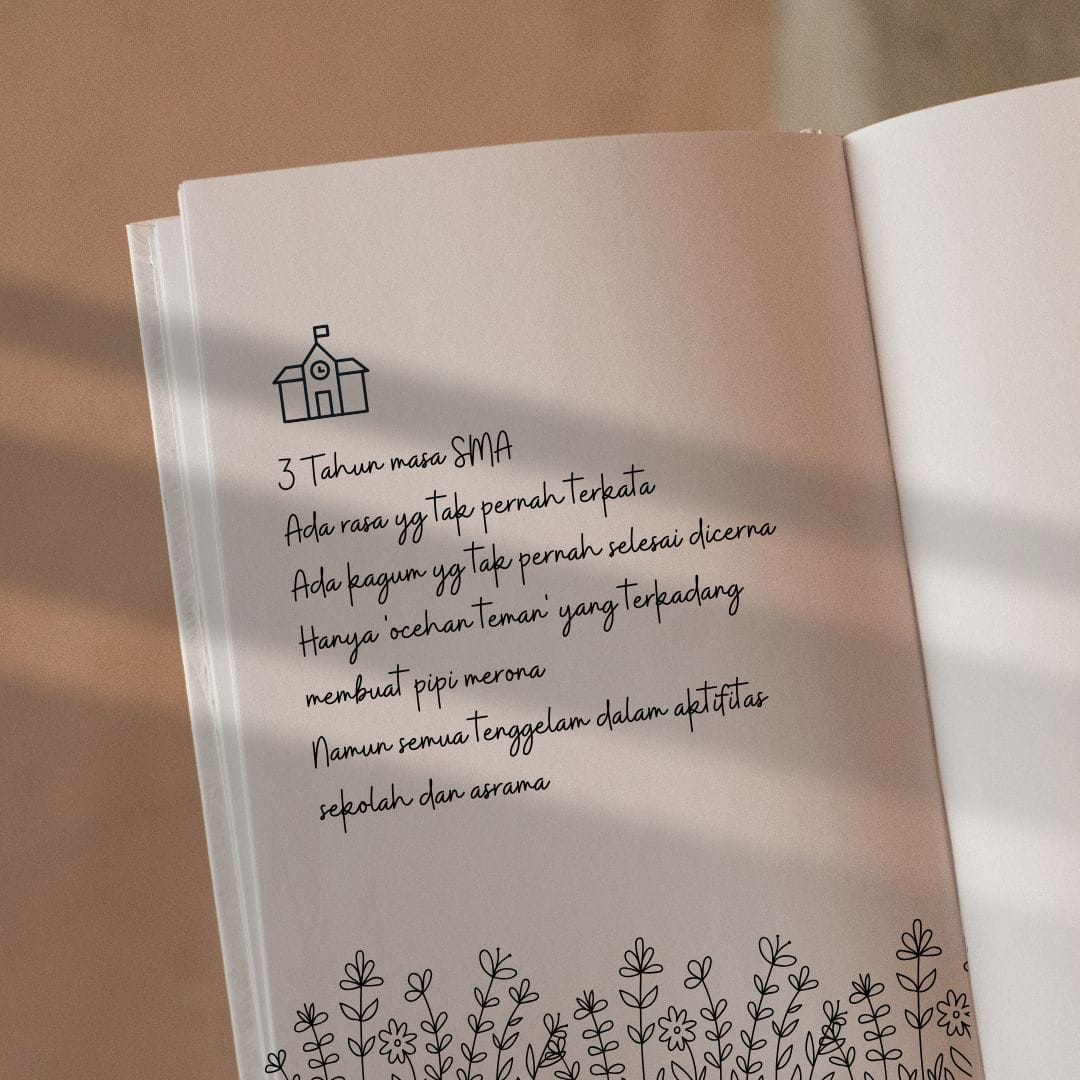 3 Tahun masa SMA
Ada rasa yg tak pernah terkata
Ada kagum yg tak pernah selesai dicerna
Hanya 'ocehan teman' yang terkadang
membuat pipi merona
Namun semua tenggelam dalam aktifitas
sekolah dan asrama